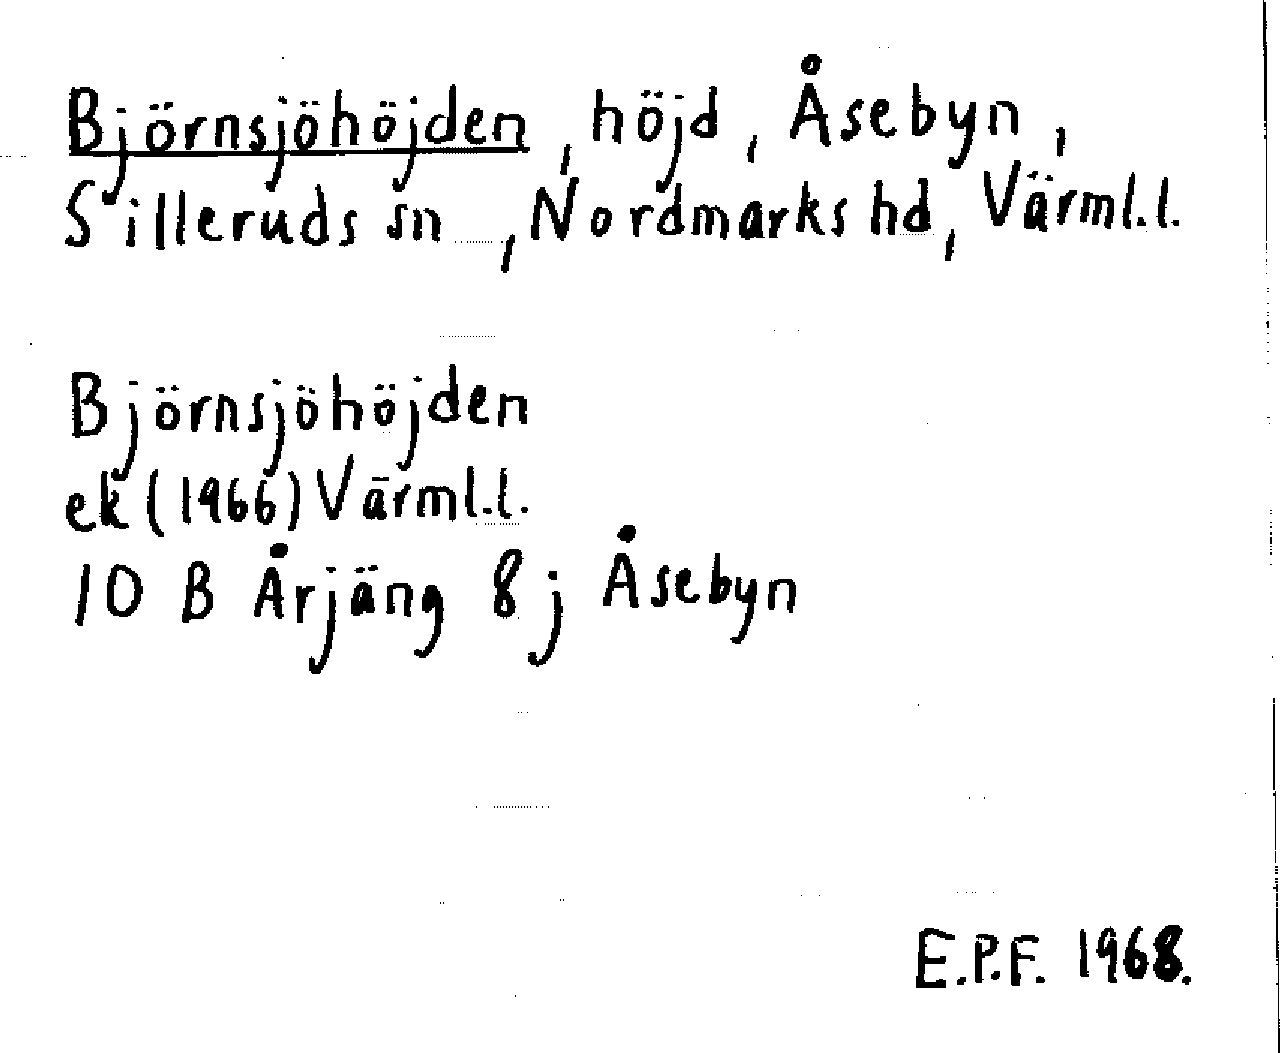 Björnsjöhöjden, höjd, Åsebyn,
Silleruds sn, Nordmarks hd, Värml.l.
Björnsjöhöjden
ek (1966) Värml.l.
10 B Årjäng 8j Åsebyn
E.P.F. 1968.